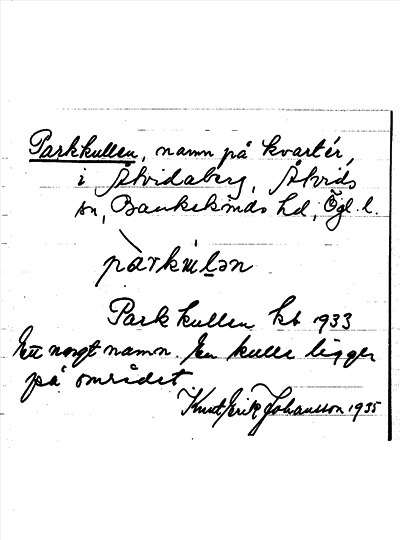 Parkkullen, namn på kvartér,
i Åtvidaberg, Åtvids
sn, Bankekinds hd, Ögl. l.
Parkkullen kb 1933
Ett norgt namn. En kulle ligger
på området
Knut Erik Johansson 1935